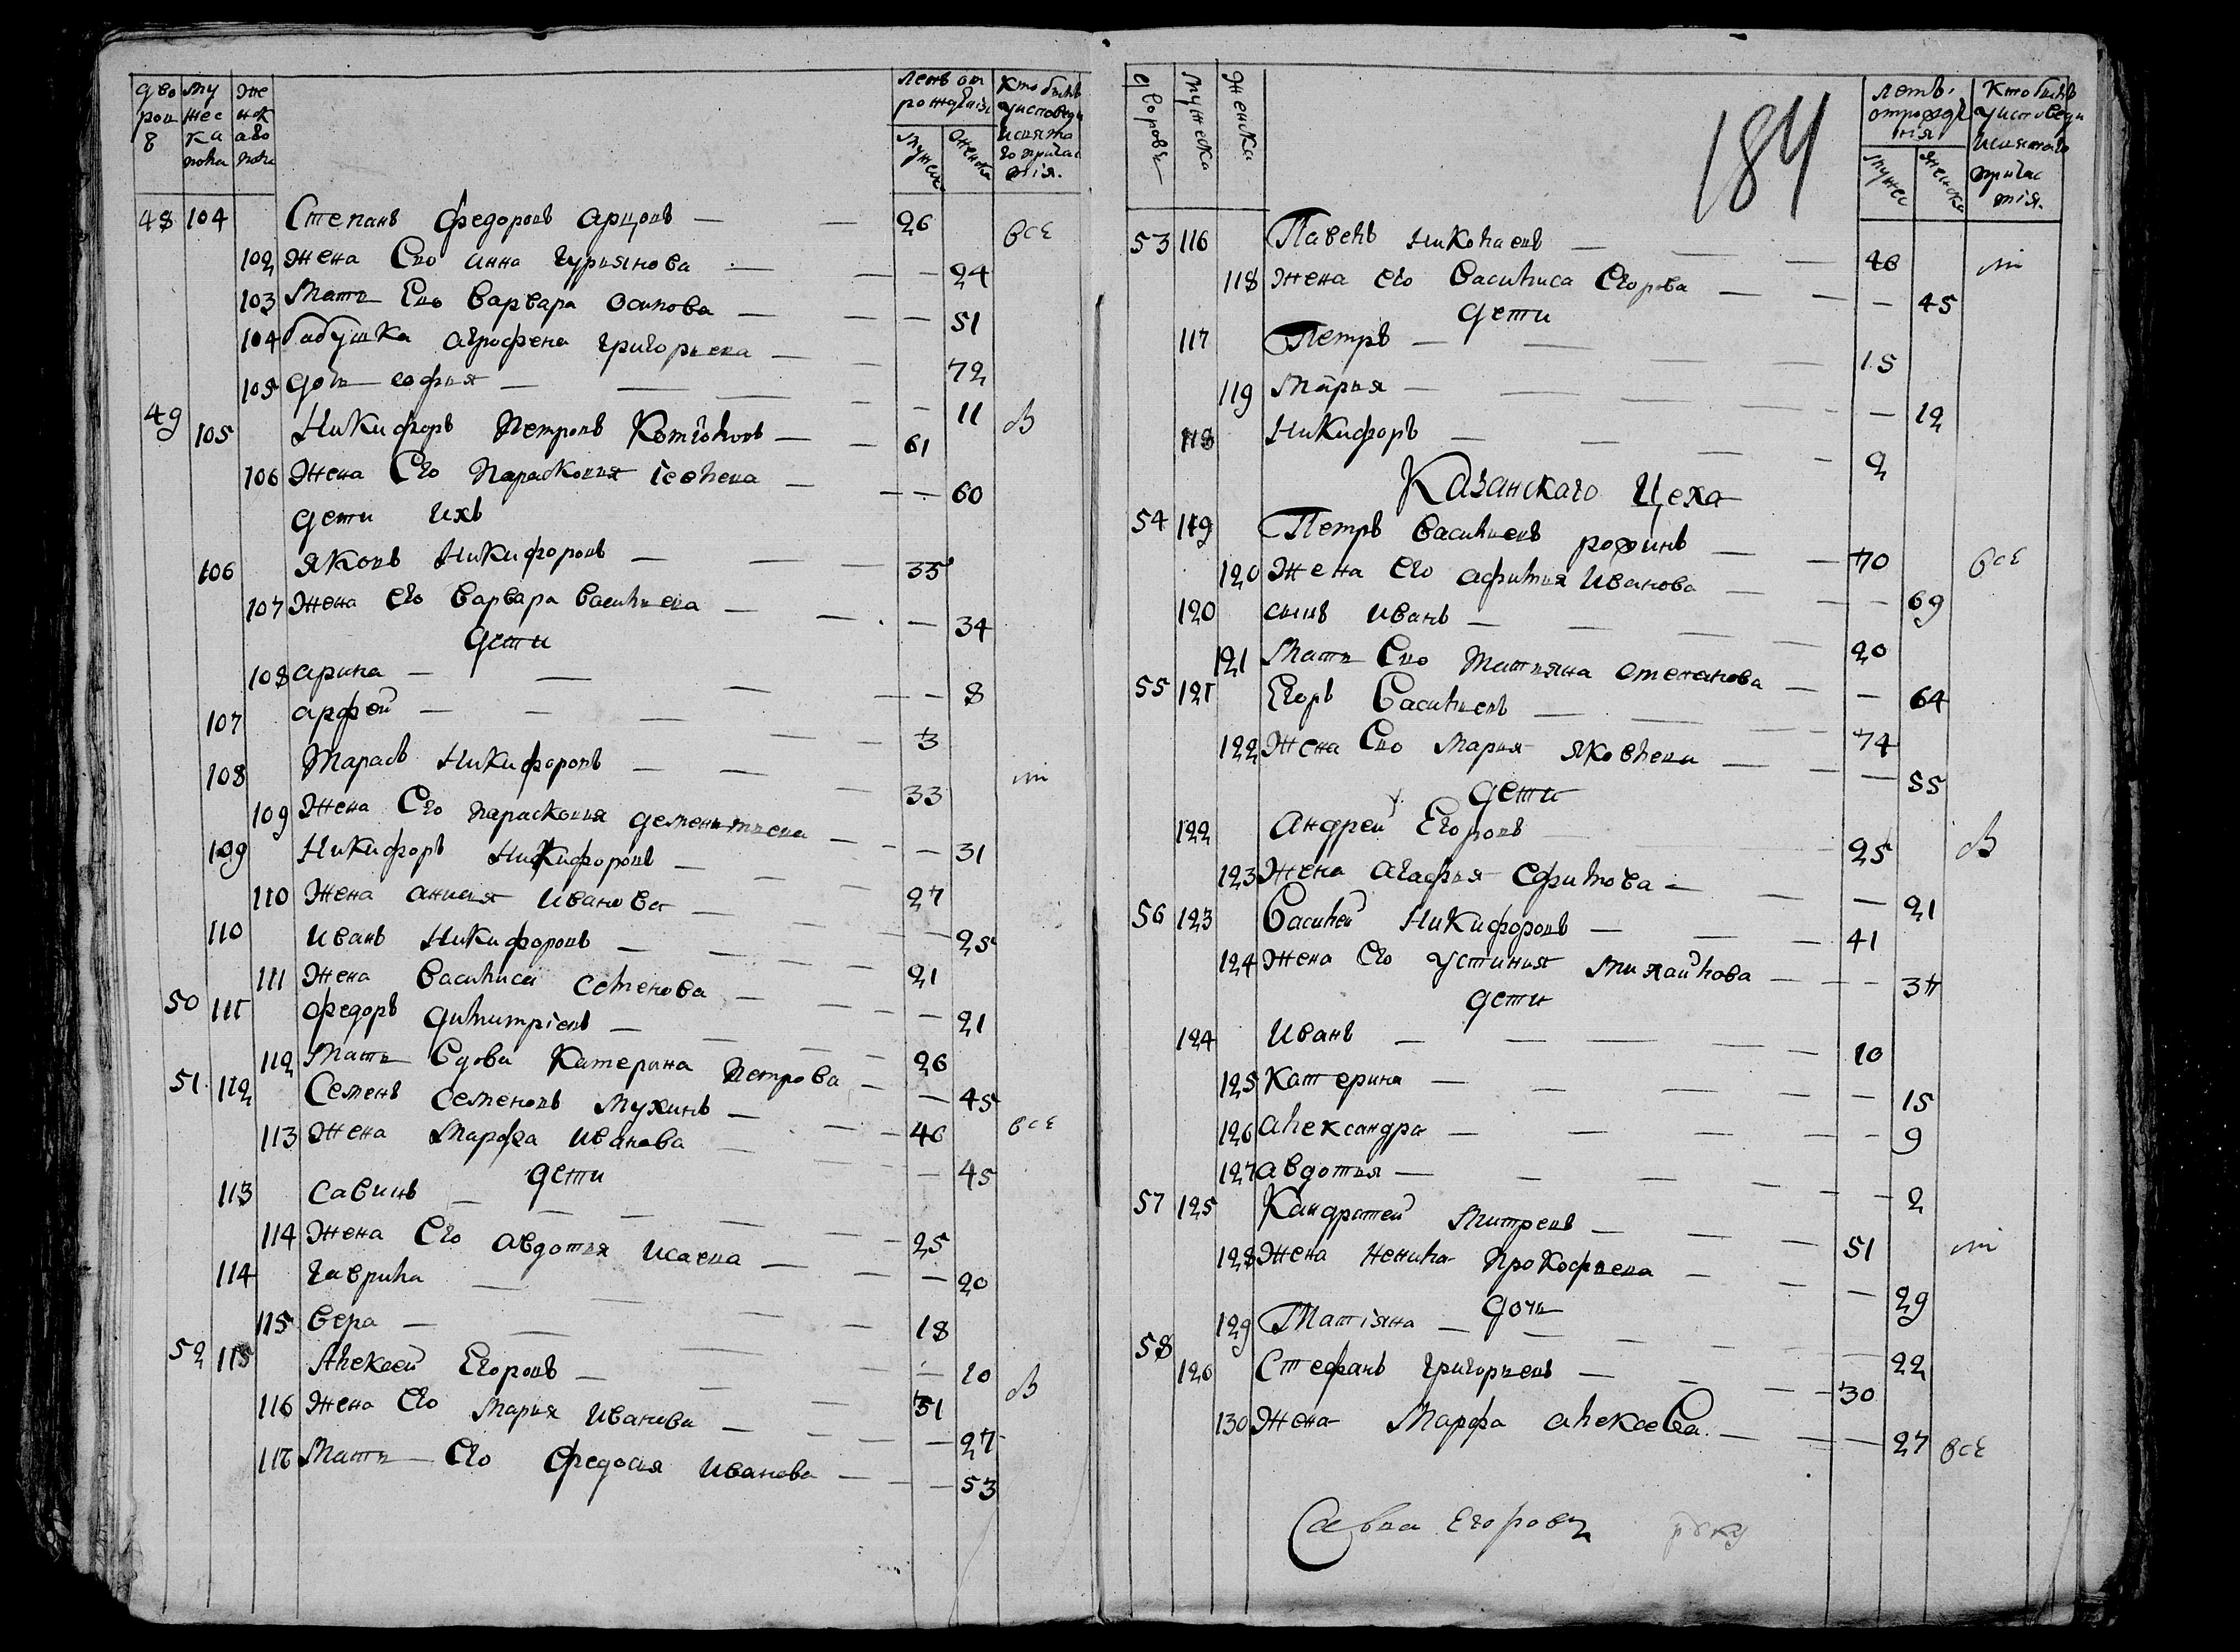 дво му же
ров жес нск
8 ка аго
пола пола
летъ от рождѣнія
мужеск женска
кто былъ у исповеди и святаго причастія.
48 104 Степанъ федоровъ арцовъ — — 26 все
102 Жена Ево анна гурианова — — 24
103 Мать Ево варвара осипова — — 51
104 бабушка аграфена григорьева — — 72
105 дочь софия — — 11
49 105 Никифоръ Петровъ — — 61 В
106 Жена Его парасковия — — 60
дети ихъ
106 яковъ Никифоровъ — — 35
107 Жена его варвара васильева — — 34
дети
108 арина — — 8
107 арфеи — — 3
108 Тарасъ Никифоровъ — — 33
109 Жена Его парасковия дементиева — — 31
109 Никифоръ Никифоровъ — — 27
110 Жена анисия иванова — — 25
110 иванъ Никифоровъ — — 21
111 Жена василиса семенова — — 21
50 111 федоръ димитриевъ — — 26
112 Мать вдова Катерина петрова — — 45
51 112 Семенъ семеновъ мухинъ — — 46 все
113 Жена марфа иванова — — 45
дети
113 савинъ — — 25
114 Жена Его авдотия исаева — — 20
114 гаврила — — 18
115 вера — — 10
52 115 Алексеи Егоровъ — — 31 В
116 Жена Его мария иванова — — 27
117 Мать Его федосия иванова — — 53
184
дворовъ мужеска женска
летъ отрождѣнія
мужес женска
кто былъ у исповеди и святаго причастія.
53 116 Павелъ николаевъ — — 46
118 жена его василиса Егорова — — 45
дети
117 Петръ — — 15
119 Мария — — 12
118 Никифоръ — — 2
Казанскаго Цеха
54 119 Петръ васильевъ — — 70 все
120 Жена его афимия иванова — — 69
120 сынъ иванъ — — 20
121 Мать Ево татияна степанова — — 64
55 121 Егоръ васильевъ — — 74
122 Жена Ево мария яковлева — — 55
дети
122 андреи Егоровъ — 25 В
123 Жена агафия ефимова — — 21
56 123 василеи никифоровъ — — 41
124 Жена Его устиния михаилова — — 37
дети
124 иванъ — — 10
125 катерина — — 15
126 александра — — 9
127 авдотия — — 2
57 125 Кандратеи митревъ — — 51
128 Жена ненила прокофиева — — 29
дочь
129 Татіяна — — 22
58 126 Стефанъ григориевъ — — 30
130 Жена марфа алексеева — — 27 все
Егоровъ руку